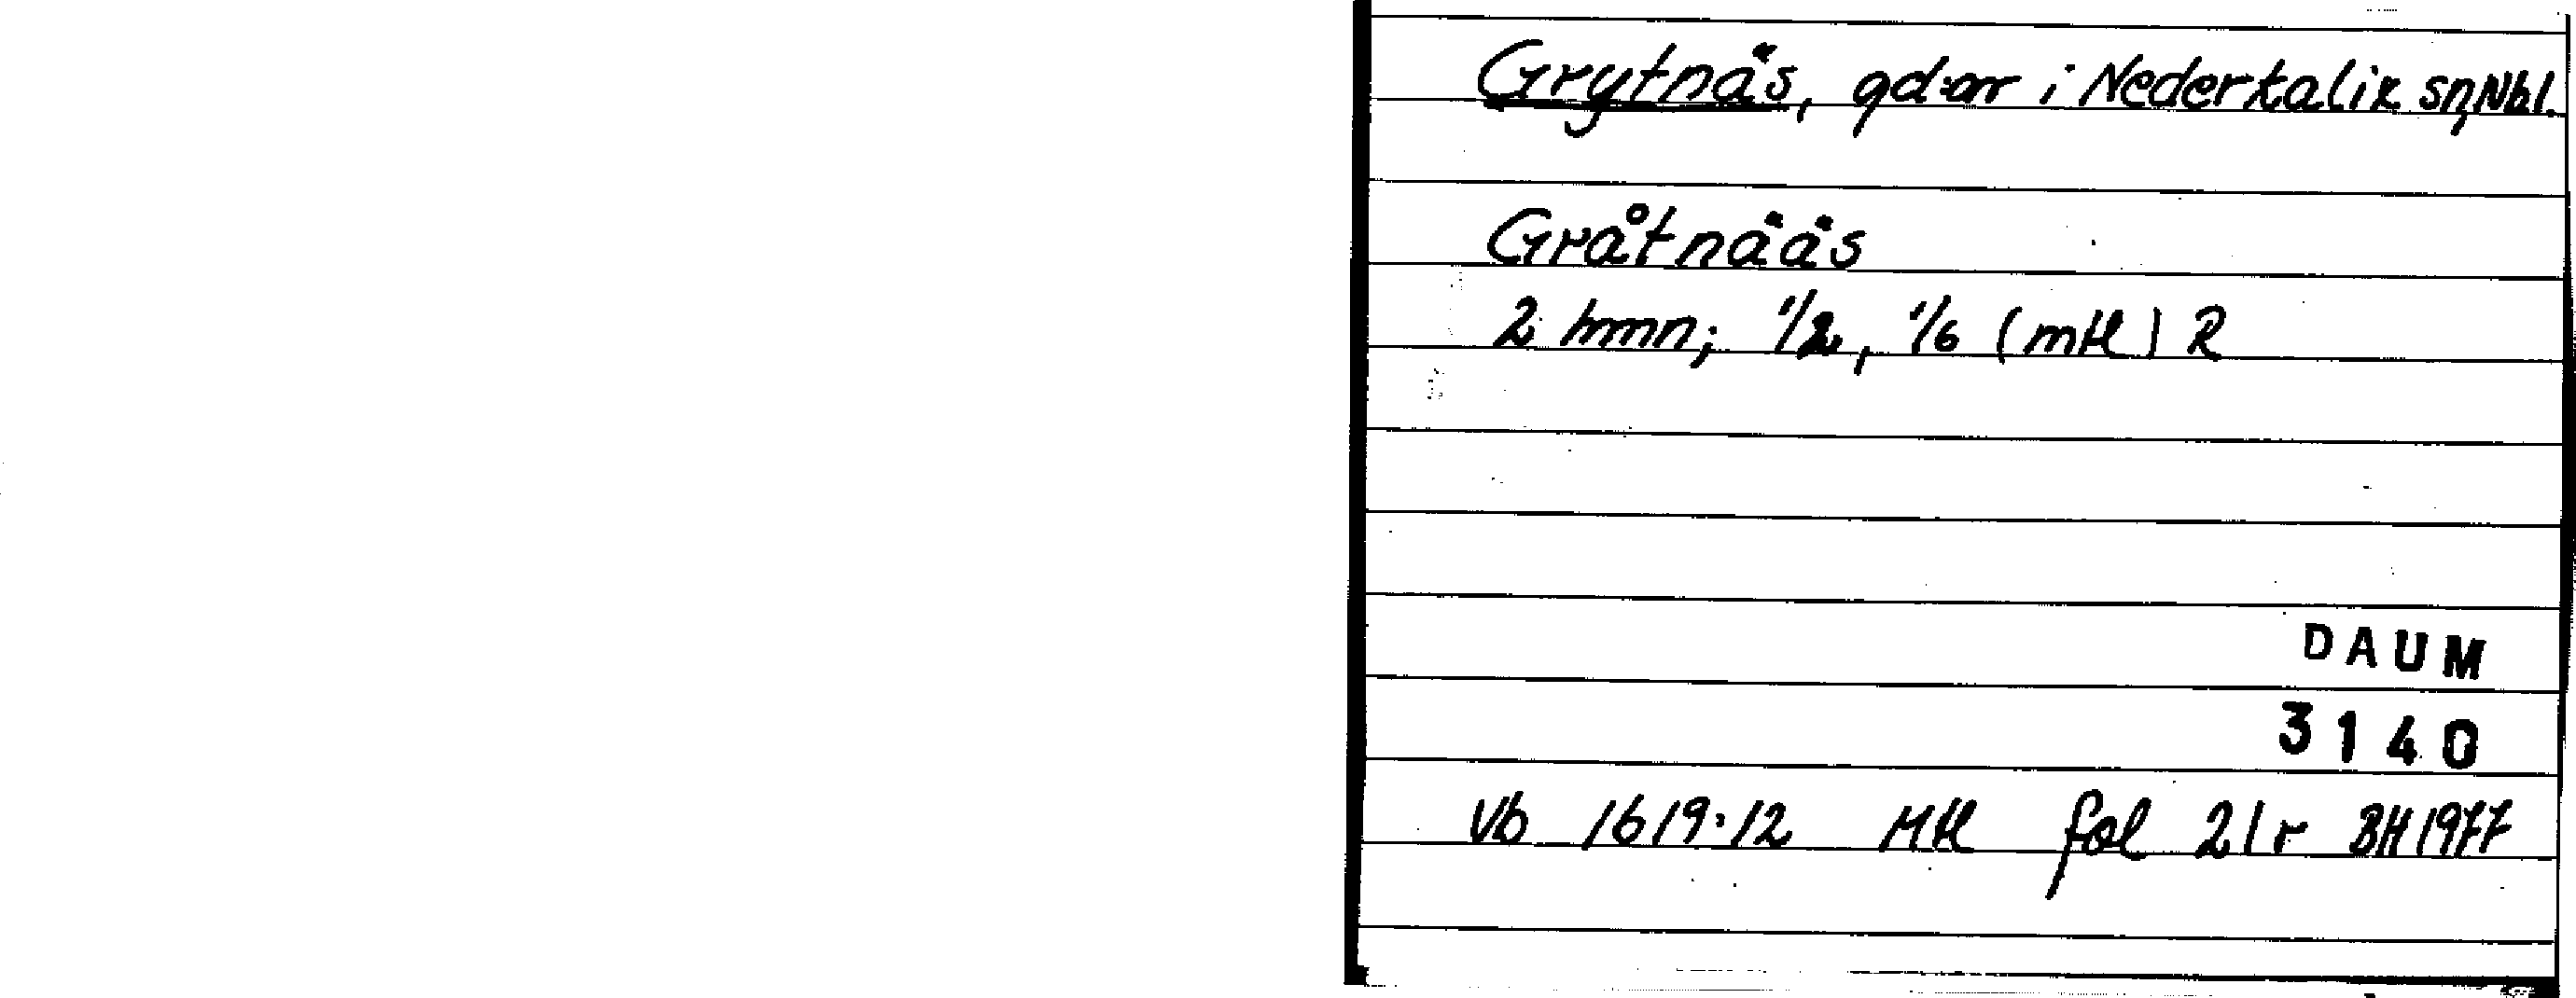 Grytnäs, gd:ar i Nederkalix sn, Nbl.
Gråtnääs
2 hmn; 1/2, 1/6 (mtl) R
DAUM
3140
Vb 1619:12 Mtl fol 21r BH 1977